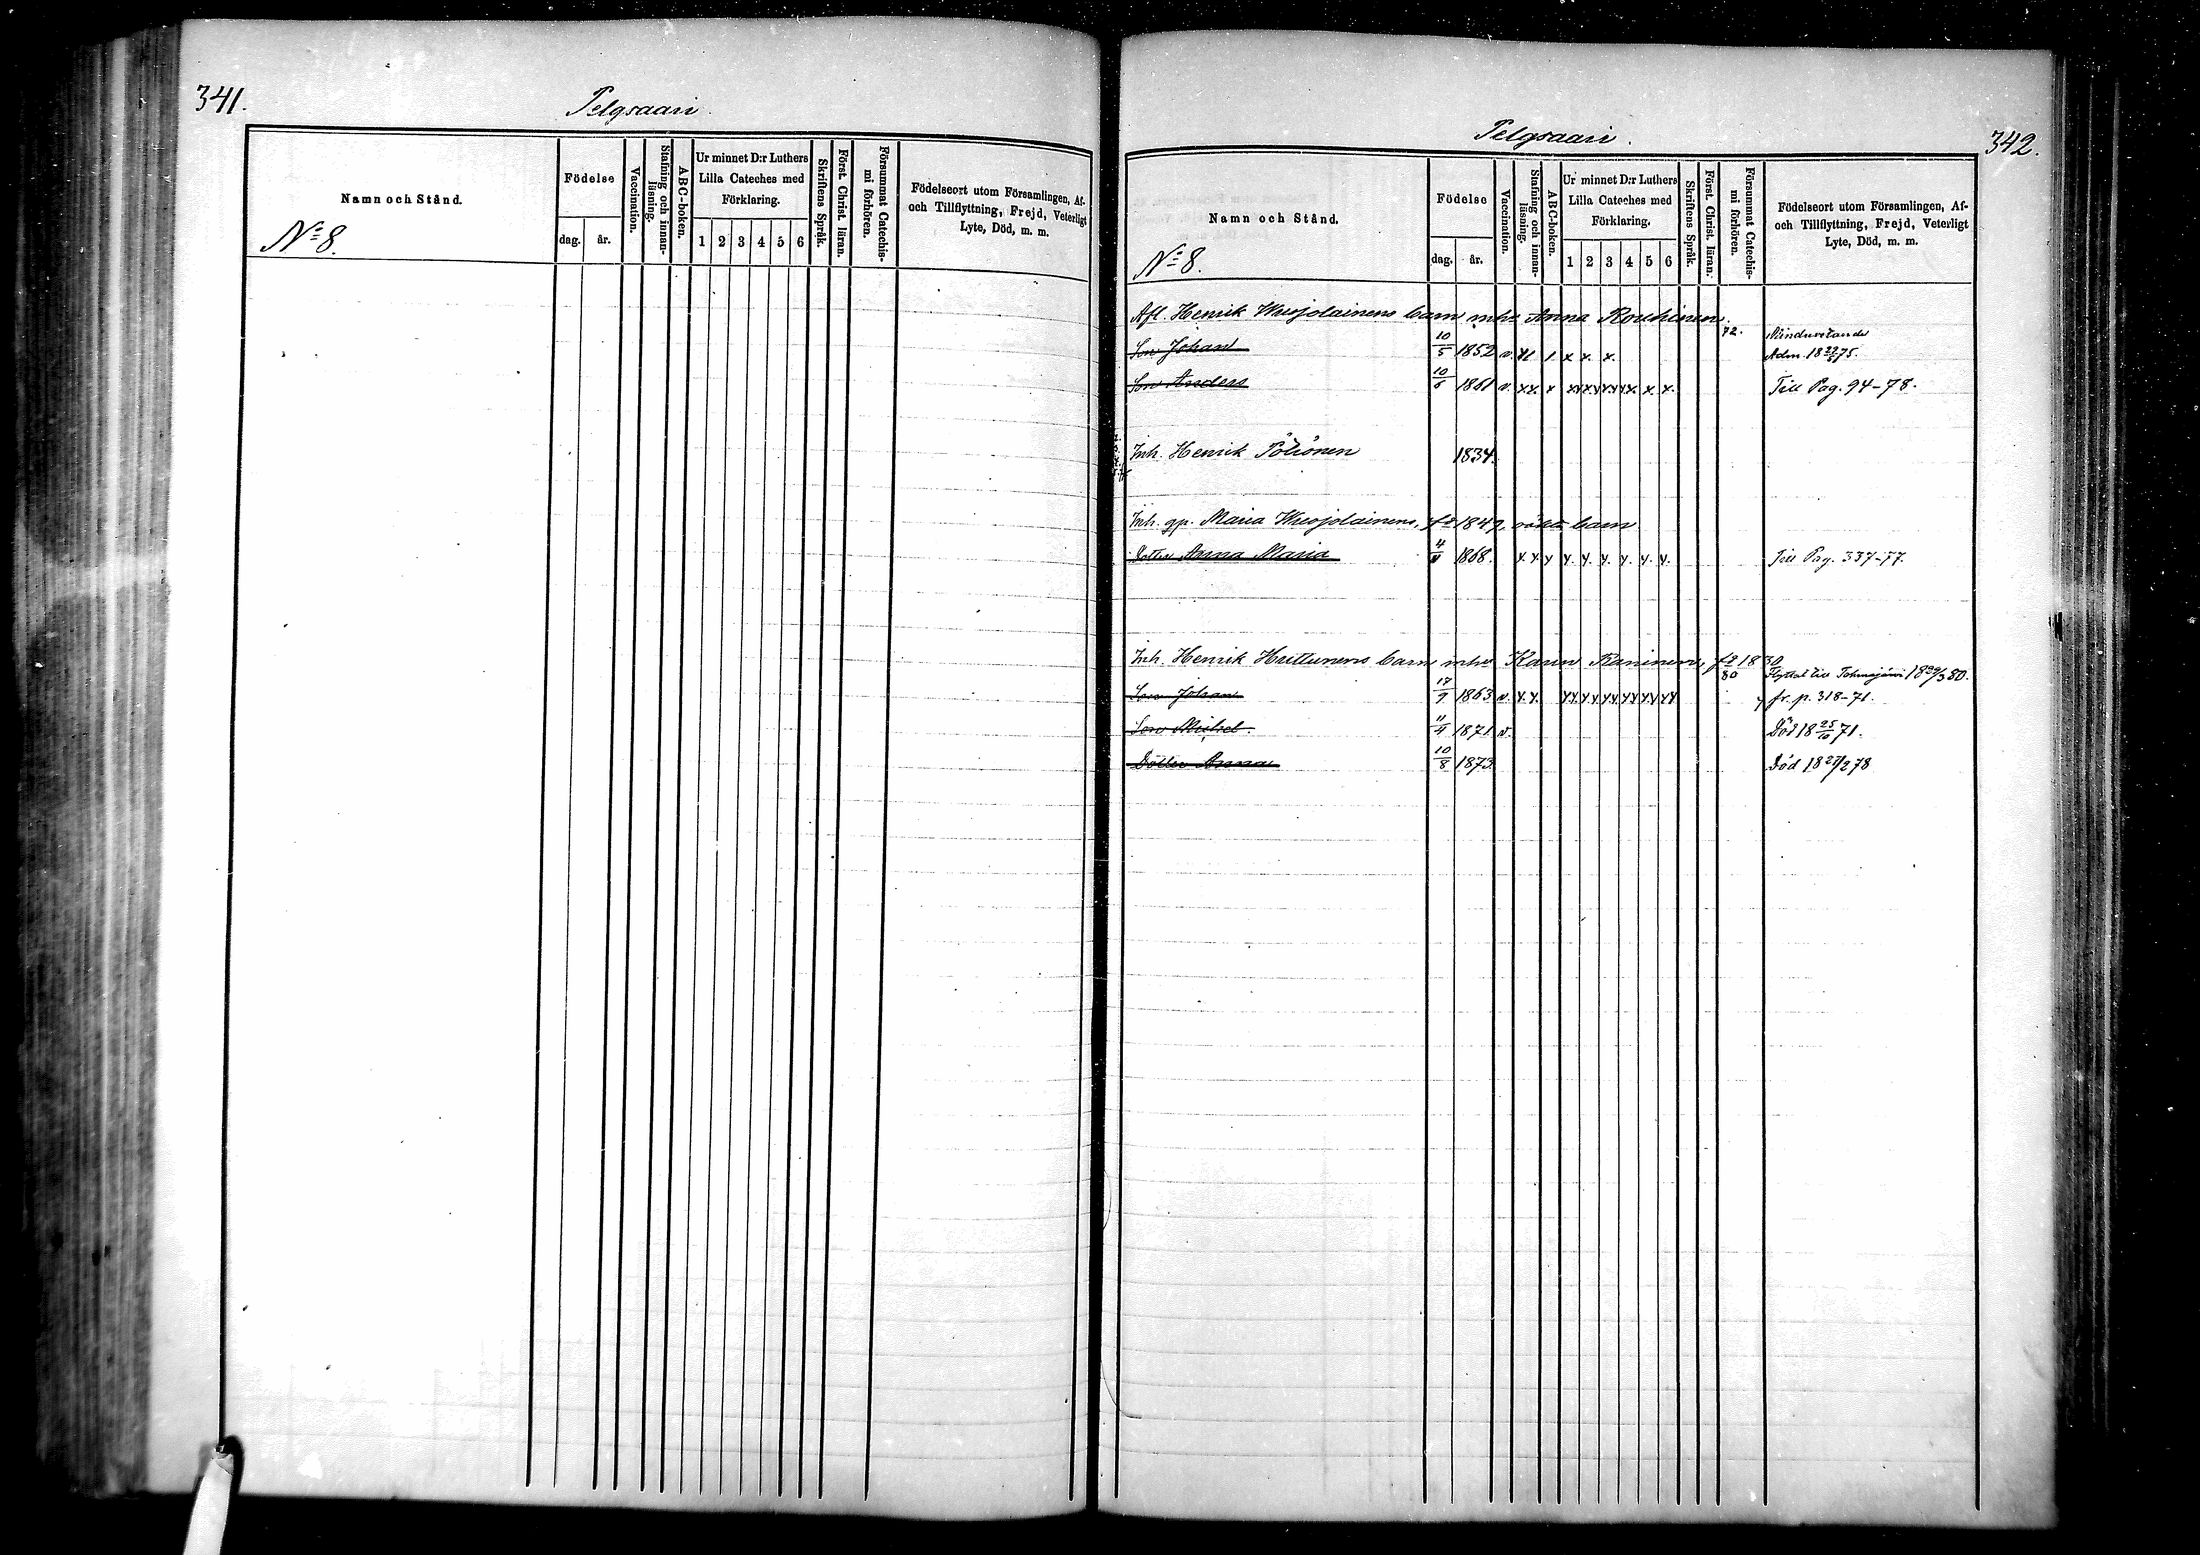 341.
Pelgsaari.
Namn och Stånd.
Födelse
dag. år.
Vaccination.
Stafning och innan-
läsning.
ABC-boken.
Ur minnet D:r Luthers
Lilla Cateches med
Förklaring.
1 2 3 4 5 6
Skriftens Språk.
Först. Christ. läran.
Försummat Catechis-
mi förhören.
Födelseort utom Församlingen, Af-
och Tillflyttning, Frejd, Veterligt
Lyte, Död, m. m.
No 8.
Pelgsaari.
342.
Namn och Stånd.
Födelse
dag. år.
Vaccination.
Stafning och innan-
läsning.
ABC-boken.
Ur minnet D:r Luthers
Lilla Cateches med
Förklaring.
1 2 3 4 5 6
Skriftens Språk.
Först. Christ. läran.
Försummat Catechis-
mi förhören.
Födelseort utom Församlingen, Af-
och Tillflyttning, Frejd, Veterligt
Lyte, Död, m. m.
No 8.
Afl. Henrik barn mhu Anna Rouhinen.
Son Johan 10/5 1852 v. x x x. 72. Adm. 18 22/5 75.
Son Anders 10/6 1861 v. x x. x x x x x x x Till Pag. 94-78.
Inh. Henrik Pölönen 1834.
Inh. gp. Maria 1847, oäkta barn
Dotter Anna Maria 4/4 1868. x. x. x x. x. x. x. x. x. Till Pag. 337-77.
Inh. Henrik Huttunens barn mhu Karin Raninen, f=d 1830
Son Johan 17/9 1863 v. x. x. 80 Flyttat till Tohmajärvi 18 29/3 80.
fr. p. 318-71.
Son Mikel. 11/4 1871 v. Död 18 25/10 71.
Dotter Anna 10/8 1873 Död 18 27/2 78